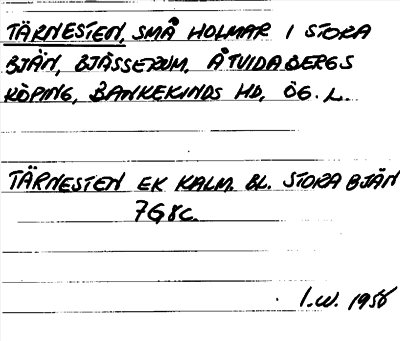 TÄRNESTEN, SMÅ HOLMAR I STORA
BJÄN, BJÄSSERUM, ÅTVIDABERGS
KÖPING, BANKEKINDS HD, ÖG. L.
TÄRNESTEN EK KALM. BL. STORA BJÄN
7G8c
I.W. 1956